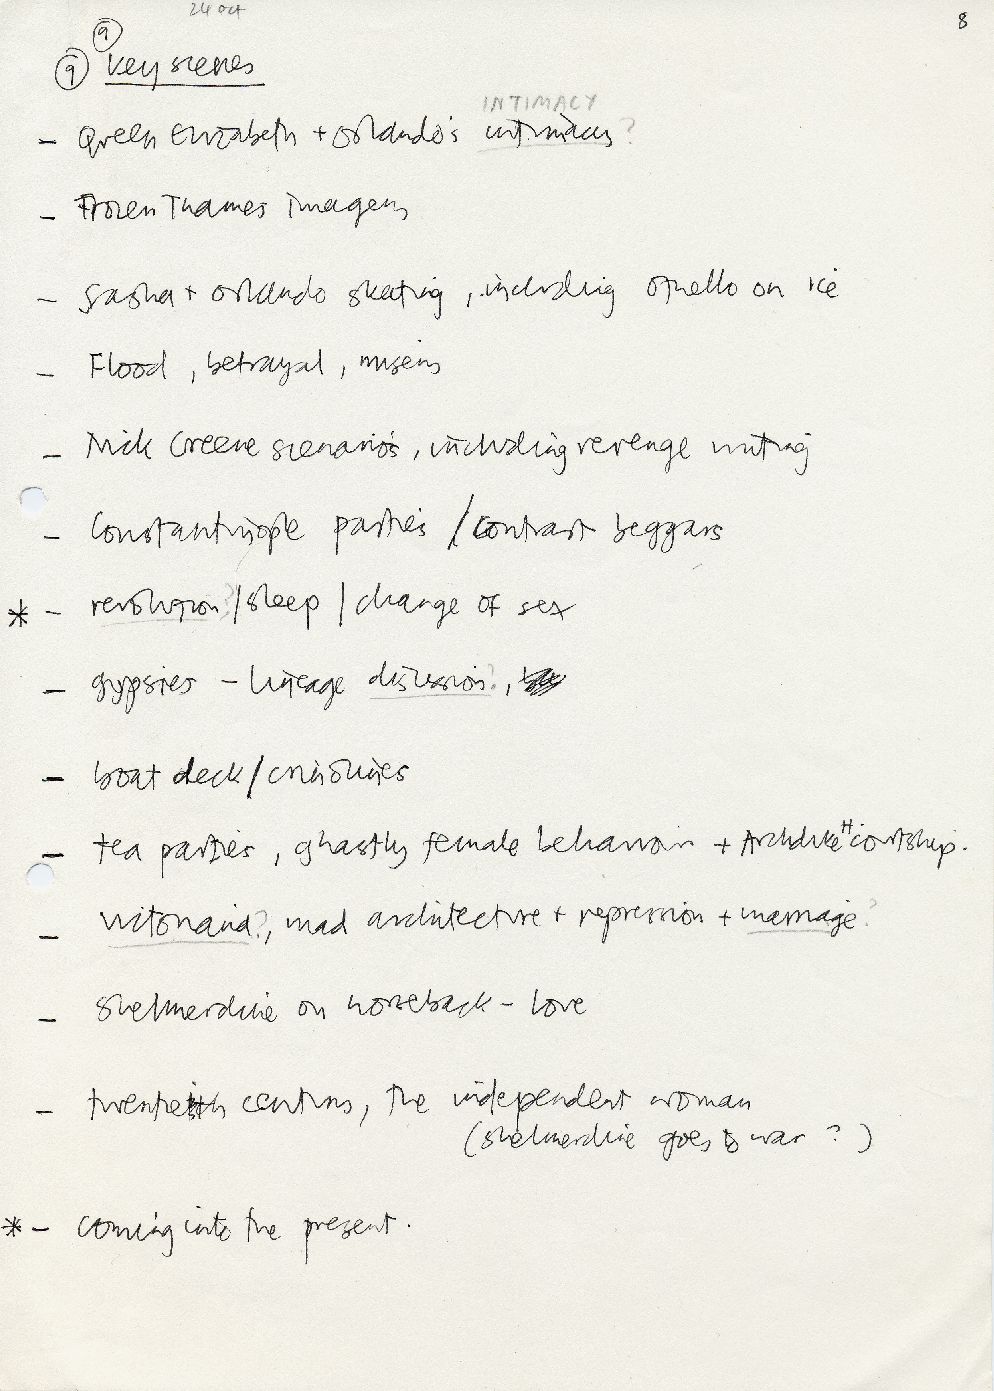 24 Oct
8
9
9 Key scenes
INTIMACY
- Queen Elizabeth + Orlando's intimacy?
- Frozen Thames imagery
- Sasha + Orlando skating, including Othello on ice
- Flood, betrayal, misery
- Nick Greene scenarios, including revenge writing
- Constantinople parties / contrast beggars
* - revolution? / sleep / change of sex
- gypsies - lineage discussion?,
- boat deck / crinolines
- tea parties, ghastly female behaviour + Archduke H courtship.
- Victoriana?, mad architecture + repression + marriage?
- Shelmerdine on horseback - love
- twentieth century, the independent woman
(Shelmerdine goes to war ?)
* - coming into the present.